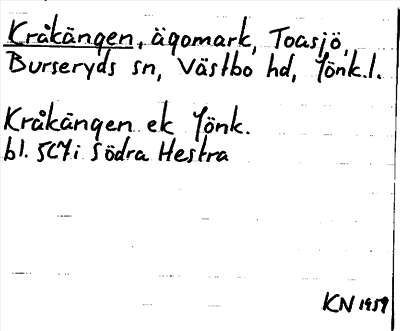 Kråkängen, ägomark, Toasjö,
Burseryds sn, Västbo hd, Jönk.l.
Kråkängen ek Jönk.
bl. 5C7i Södra Hestra
KN 1959